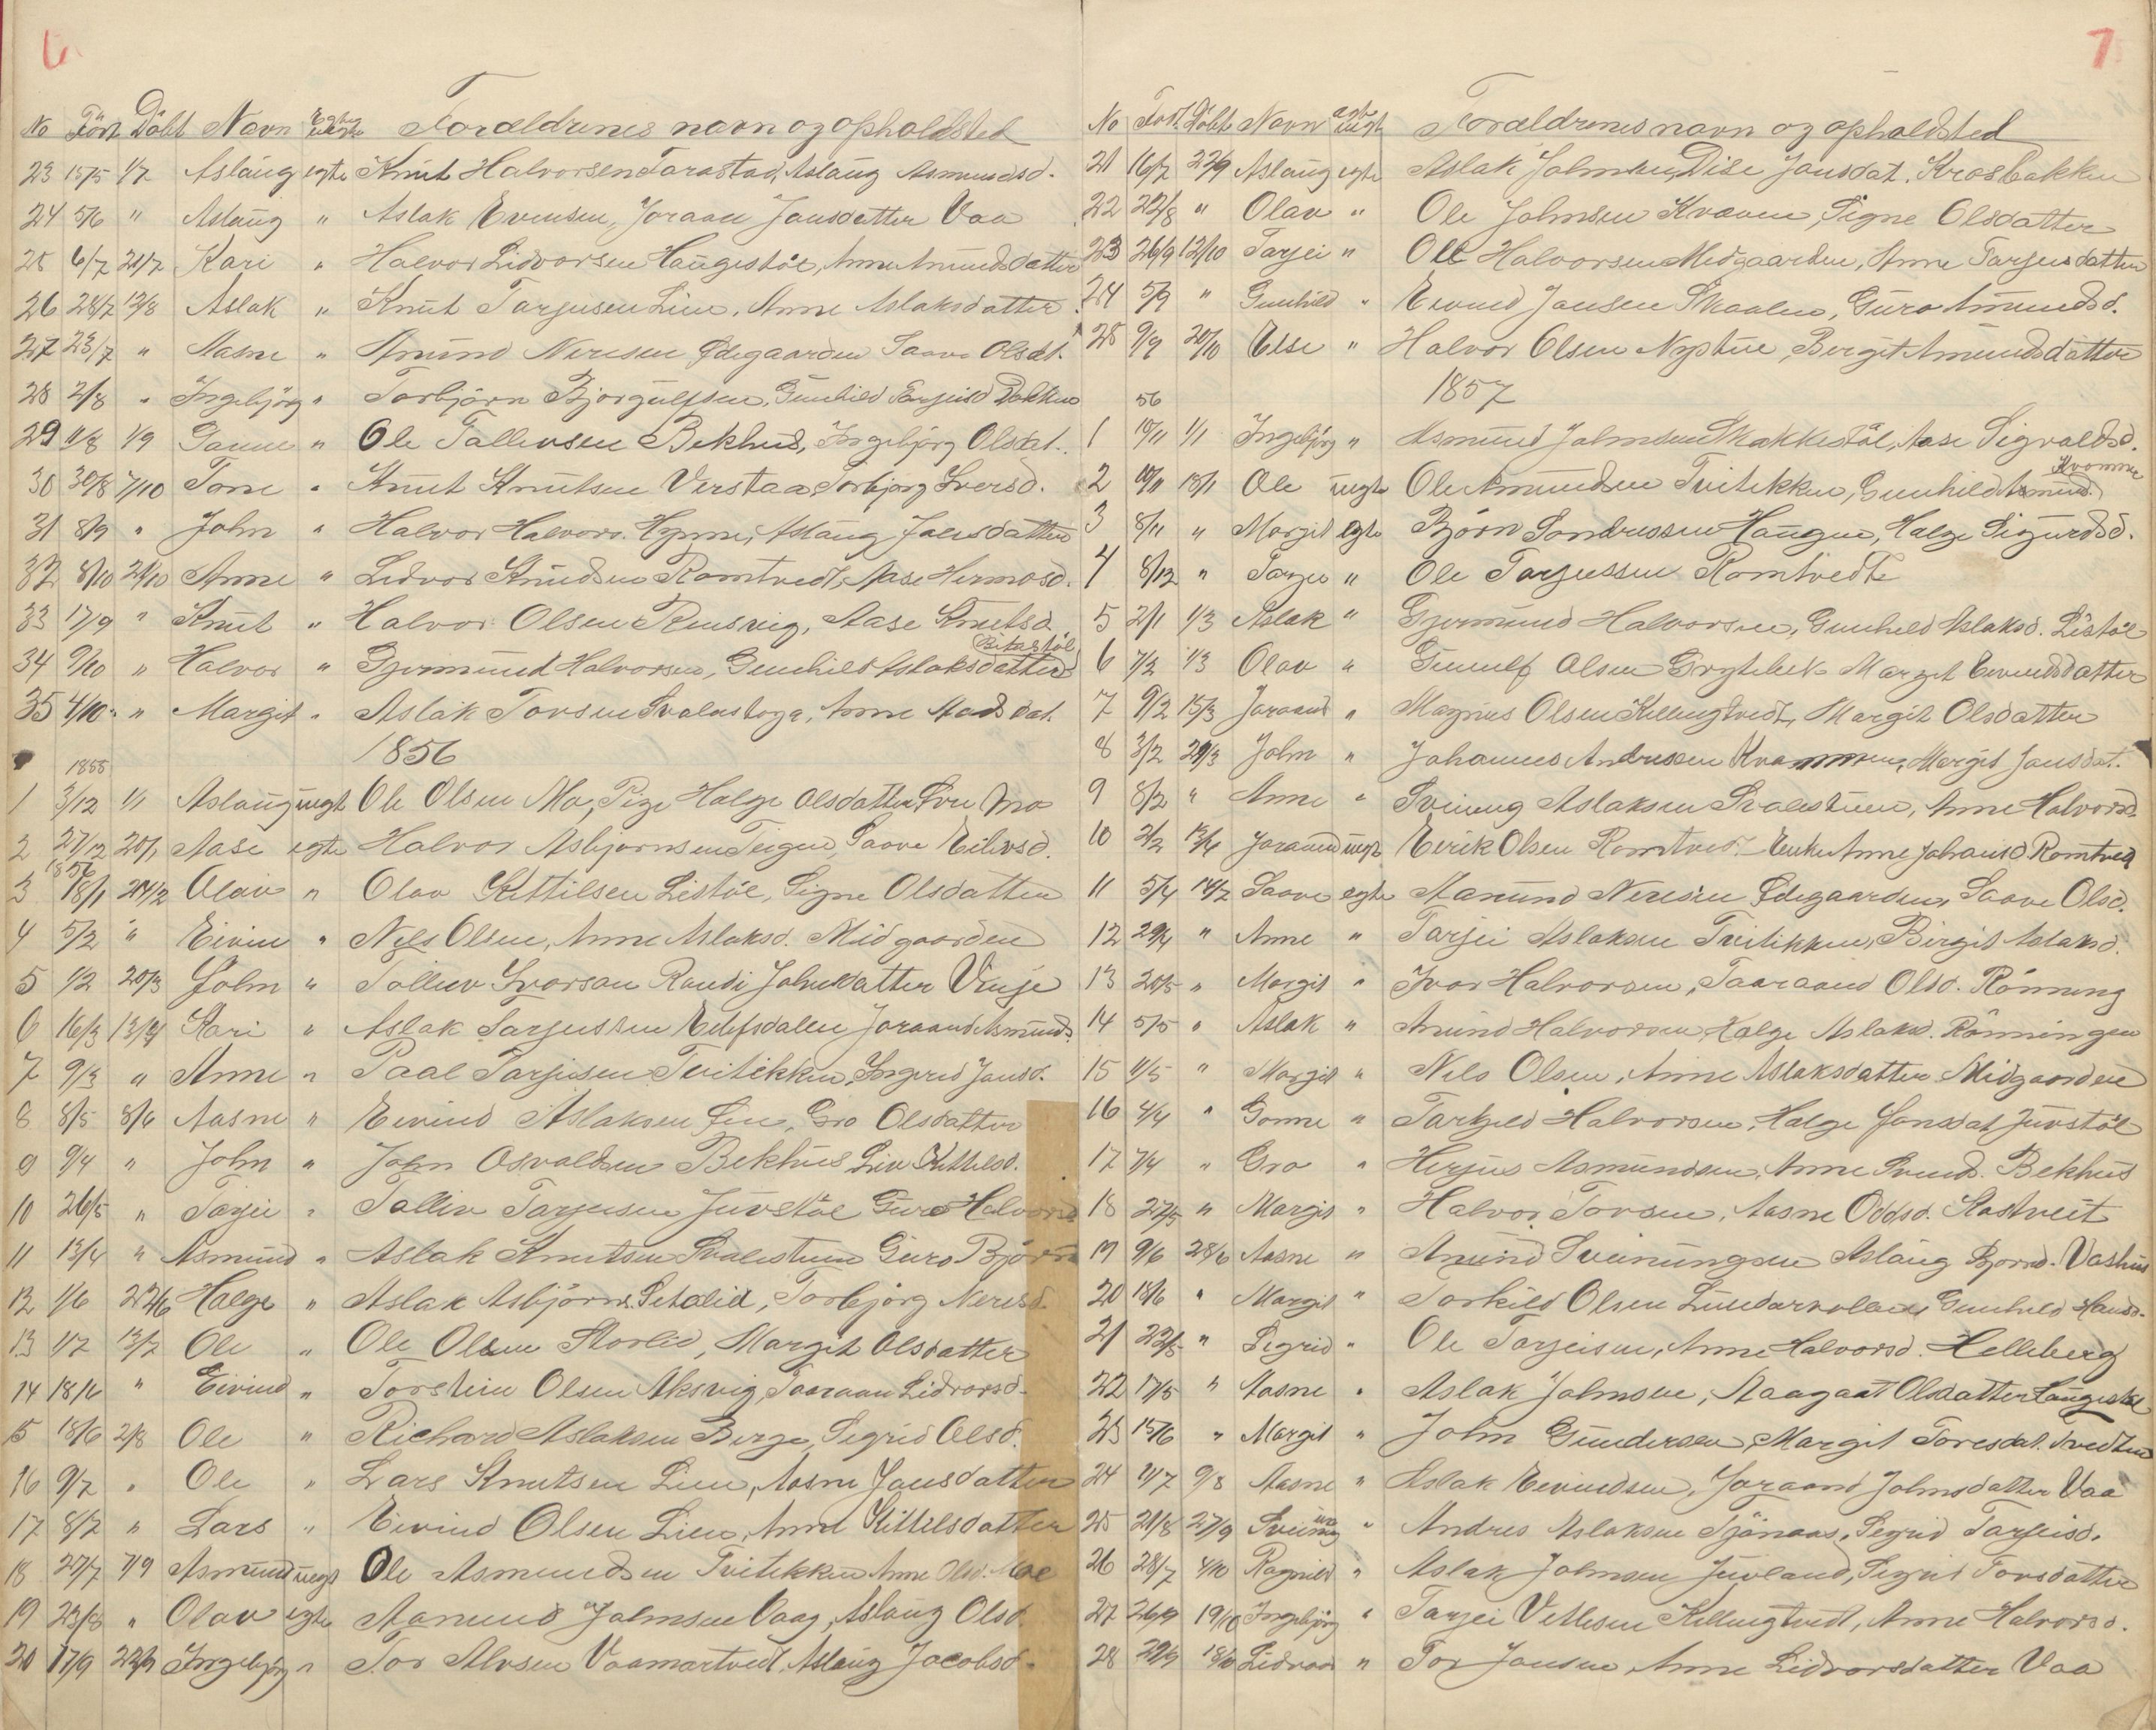 6
No Föst Döbt Navn Egte uegte Forældrenes navn og opholdsted
23 15/5 1/7 Aslaug egte Knut Halvorsen Tarastad, Aslaug Asmundsd.
24 5/6 " Aslaug " Aslak Evensen, Joraan Jansdatter Vaa
25 6/7 21/7 Kari " Halvor Lidvorsen Haugestöl, Anne Amundsdatter
26 28/7 12/8 Aslak " Knut Tarjusen Lien, Anne Aslaksdatter
27 23/7 " Aasne " Anund Neresen Ødegaarden Saave Olsdt.
28 2/8 " Ingebjörg " Torbjörn Bjorgulfsen, Gunhild Tarjeisd Bakken
29 11/8 1/9 " Ole Tallevsen Bekhus, Ingebjörg Olsdat.
30 30/8 7/10 Tone " Knut Knutsen Verstaa Torbjörg Iversd.
31 8/9 " John " Halvor Halvors. Hynne, Aslaug Jansdatter
32 8/10 21/10 Anne " Lidvor Knudsen Romtvedt, Aase Hermosd.
33 17/9 " Knut " Halvor Olsen Rensvig, Aase Knutsd.
34 9/10 " Halvor " Gjermund Halvorsen, Gunhild Aslaksdatter Bitastöl
35 4/10 " Margit " Aslak Torsen Svalastoga, Anne Aadsdat.
1856
1855
1 3/12 1/1 Aslaug uegt Ole Olsen Mo, Pige Halge Olsdatter Mo
2 27/12 20/1 Aase egte Halvor Asbjornsen Teigen, Saave Eilivsd.
1856
3 18/1 24/2 Olav " Olav Kittilsen Listöl, Signe Olsdatter
4 5/2 " Eivin " Nels Olsen, Anne Aslaksd. Midgaarden
5 1/2 20/3 John " Tollev Ivorsen Randi Johnsdatter Vinje
6 16/3 13/4 Kari " Aslak Tarjussen Edlefsdalen Joraand Asmunds.
7 9/3 " Anne " Paal Tarjeisen Tveitekken, Ingerid Jansd.
8 8/5 8/6 Aasne " Eivind Aslaksen Lien, Gro Olsdatter
9 9/4 " John " John Osvaldsen Bekhus Liv Kittilsd.
10 26/5 " Tarjei " Tallev Tarjeisen Juvstöl Guro Halvorsd
11 13/4 " Asmund " Aslak Knutsen Svalestuen Guro Björns
12 1/6 22/6 Halge " Aslak Asbjörns. Setalid, Torbjörg Neresd.
13 1/7 13/7 Ole " Ole Olsen Storlid, Margit Olsdatter
14 18/6 " Eivind " Torstein Olsen Aksvig, Taaraan Lidvorsd.
15 18/6 2/8 Ole " Richard Aslaksen Berge, Sigrid Olsd.
16 9/7 " Ole " Lars Knutsen Lien, Aasne Jansdatter
17 8/7 " Lars " Eivind Olsen Lien, Anne Kittilsdatter
18 27/7 7/9 Asmund uegt Ole Asmundsen Tveitekken Anne Olsd. Moe
19 23/8 " Olav egte Aanund Jalmsen Vaag, Aslaug Olsd.
20 17/9 22/9 Ingebjörg " Tor Alvsen Vaamartvedt, Aslaug Jacobsd.
7
No Föst. Döbt Navn egte uegt Forældrenes navn og opholdsted
21 16/7 22/9 Aslaug egte Aslak Johnsen, Dise Jansdat. Krosbakken
22 22/8 " Olav " Ole Johnsen Kvaven, Signe Olsdatter
23 26/9 12/10 Tarjei " Ole Halvorsen Midgaarden, Anne Tarjeisdatter
24 5/9 " Gunhild " Eivind Jansen Skaalen, Guro Amundsd.
25 9/9 20/10 Else " Halvor Olsen Nystue, Bergit Amundsdatter
1857
56
1 10/11 1/1 Ingebjörg " Asmund Johnsen Skakkestöl, Aase Sigvaldsd.
2 10/11 18/1 Ole uegte Ole Amundsen Tveitekken, Gunhild Asmund. Kvamme
3 8/11 " Margit egte Björn Sondresen Haugen, Halge Sigurdsd.
4 8/12 " Tarjei " Ole Tarjussen Romtvedt
5 2/1 1/3 Aslak " Gjermund Halvorsen, Gunhild Aslaksd. Listöl
6 7/2 1/3 Olav " Gunulf Olsen Grytebek Margit Eivindsdatter
7 9/2 15/3 Joraand " Magnus Olsen Kellingtvedt, Margit Olsdatter
8 3/2 29/3 John " Johannes Andresen Kvammen, Margit Jansdat.
9 8/2 " Anne " Sveinung Aslaksen Svalestuen, Anne Halvorsd.
10 2/2 13/4 Joraand uegt Eirik Olsen Romtvedt. Enke Anne Johansd Romtved
11 5/4 14/7 Saave egte Aanund Neresen Ødegaarden, Saave Olsd.
12 29/4 " Anne " Tarjei Aslaksen Tveitekken, Birgit Aslaksd.
13 20/5 " Margit " Ivar Halvorsen, Taaraand Olsd. Rönning
14 5/5 " Aslak " Anund Halvorsen, Halge Aslaksd. Rönningen
15 11/5 " Margit " Nils Olsen, Anne Aslaksdatter Midgaarden
16 4/4 " Gonne " Tarkjeld Halvorsen, Halge Jonsdat Juvstöl
17 7/4 " Gro " Herjus Asmundsen, Anne Svends. Bekhus
18 27/5 " Margit " Halvor Torsen, Aasne Oddsd. Rastveit
19 9/6 28/6 Aasne " Anund Sveinungsen Aslaug Bjornd. Vashus
20 18/6 " Margit " Torkild Olsen Gunhild Hansd.
21 22/5 " Sigrid " Ole Tarjeisen, Anne Halvorsd. Helleberg
22 17/5 " Aasne " Aslak Johnsen, Aaagaat Olsdatter Laugestöl
23 15/6 " Margit " John Gundersen, Margit Toresdat. Tvedten
24 11/7 9/8 Aasne " Aslak Eivindsen, Joraand Johnsdatter Vaa
25 21/8 27/9 Sveinung " Andres Aslaksen Tjönaas, Sigrid Tarjeisd.
26 28/7 4/10 Ragnild " Aslak Johnsen Juvland, Sigrid Torsdatter
27 26/9 19/10 Ingebjörg " Tarjei Vetlesen Kellingtvedt, Anne Halvorsd.
28 29/9 18/10 Lidvor " Tor Jansen Anne Lidvorsdatter Vaa